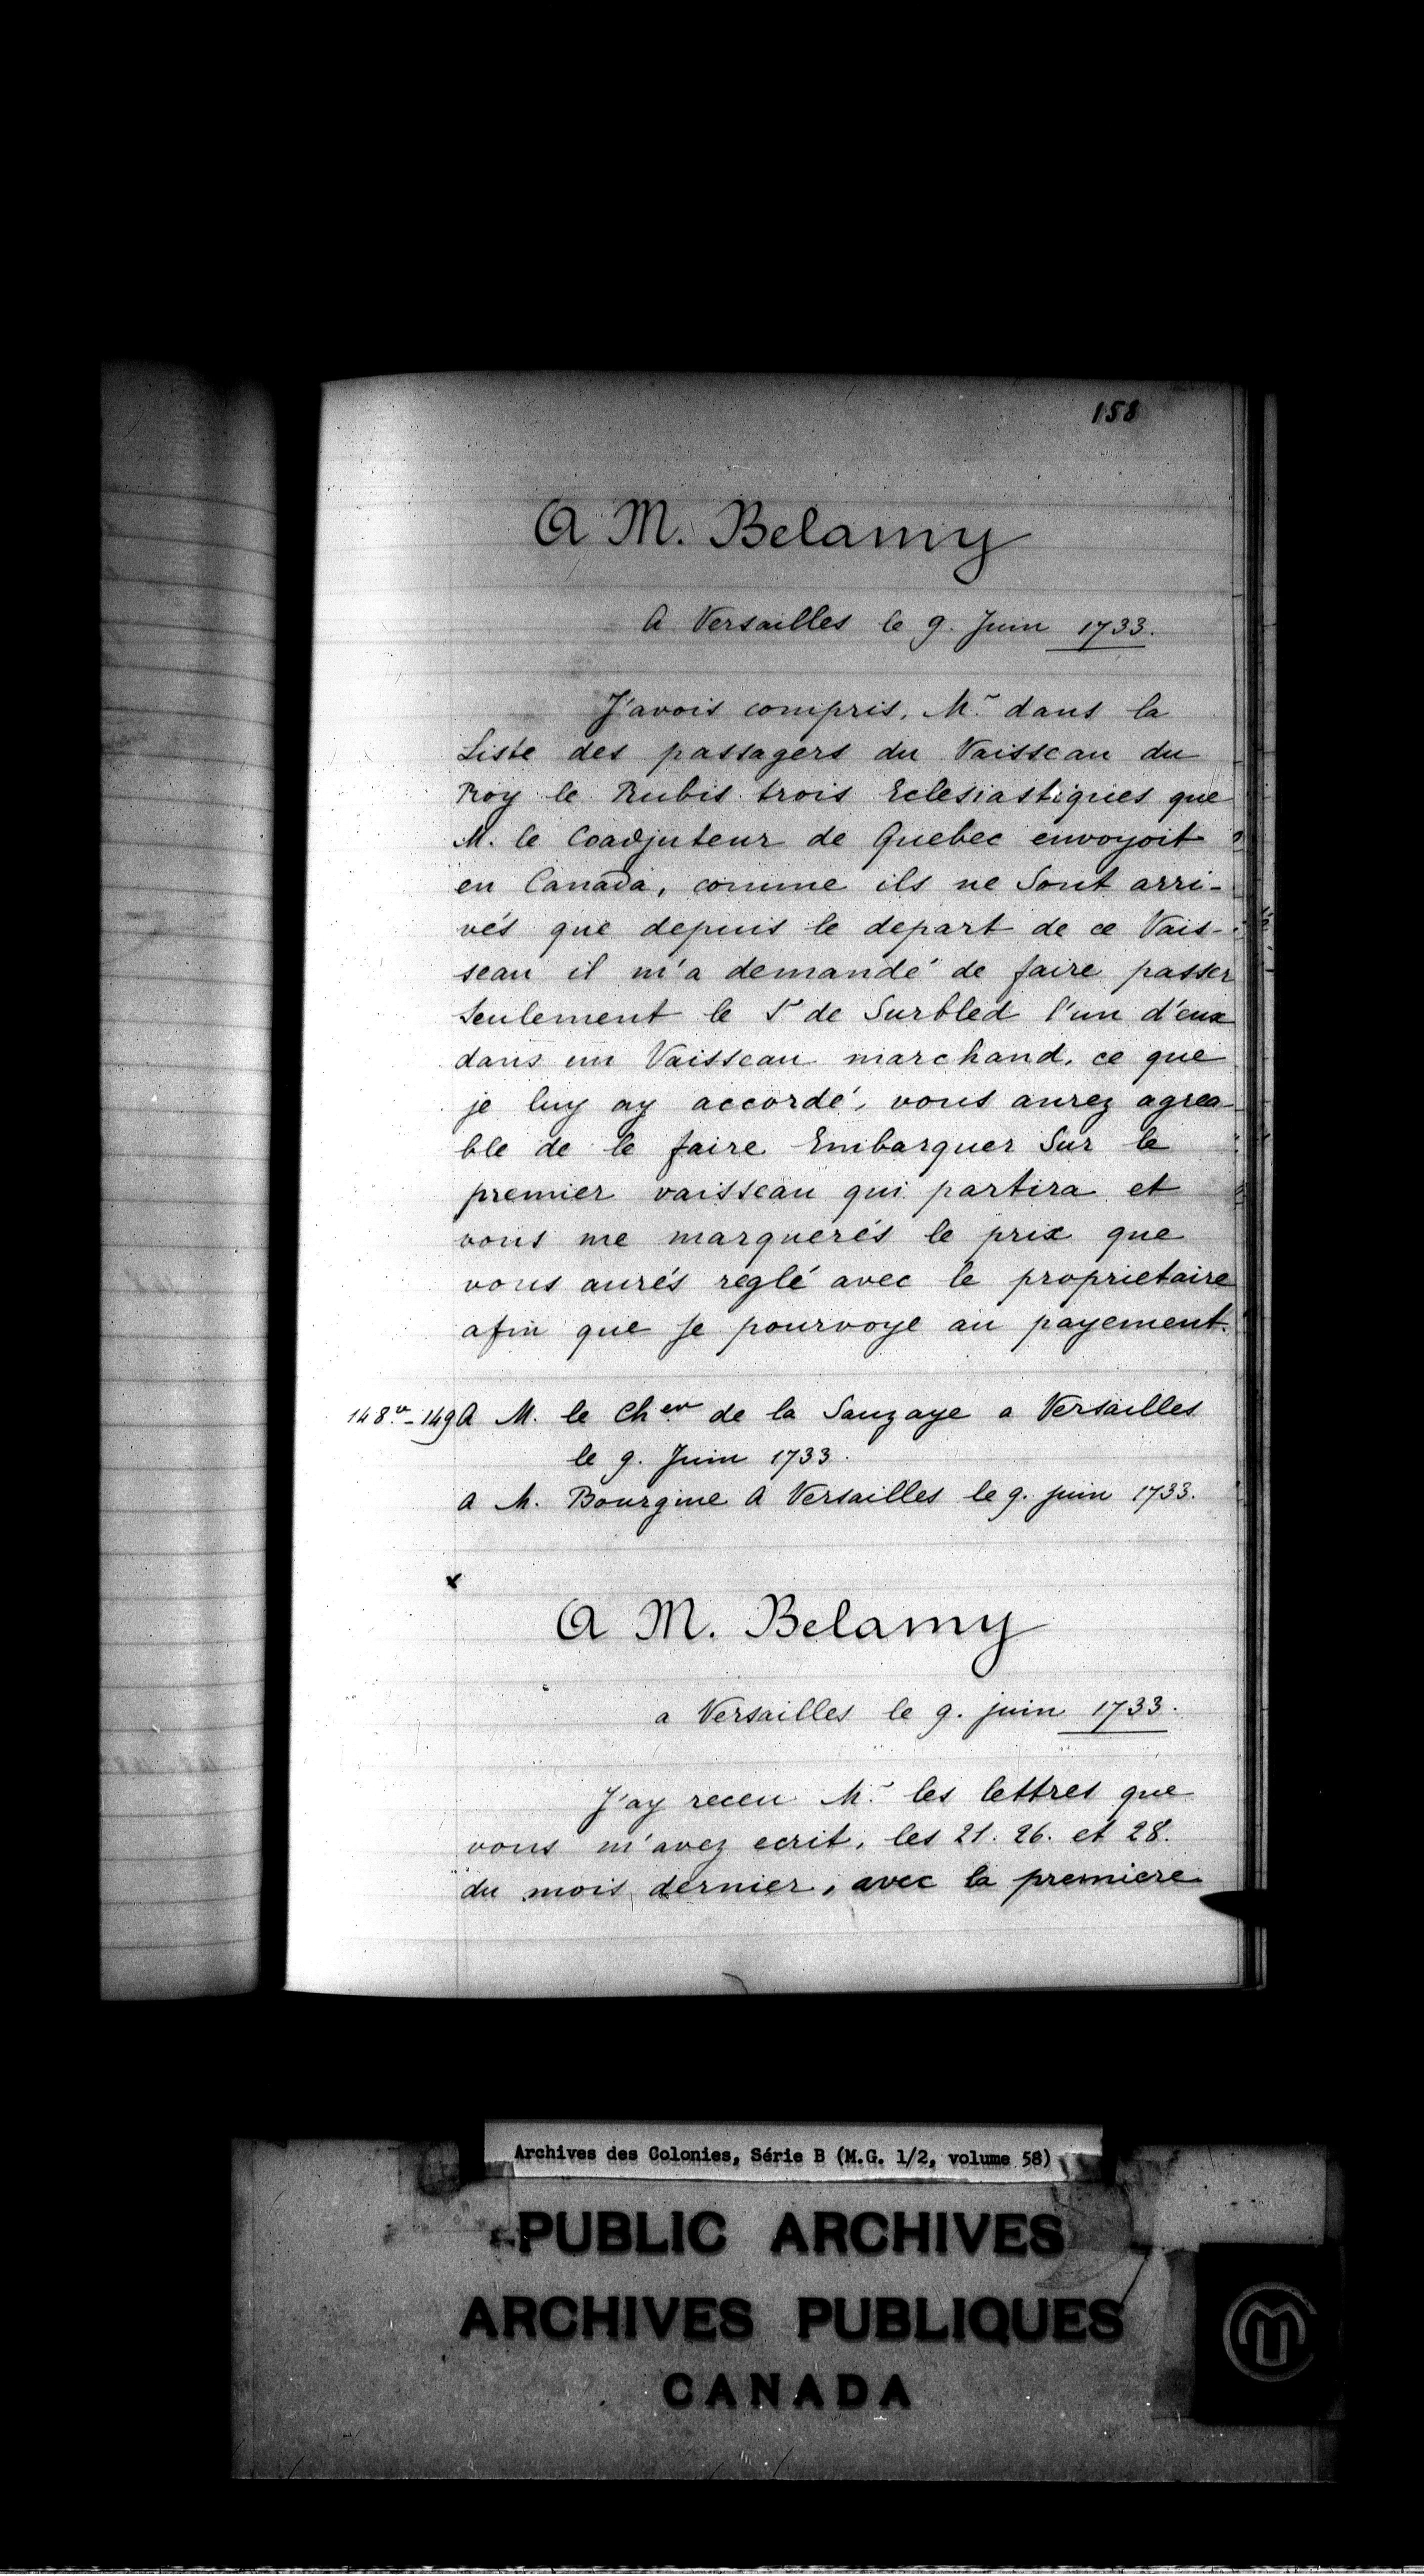 158
A M. Belamy
A Versailles le 9. Juin 1733.
J'avois compris, Mr dans la
Liste des passagers du Vaisseau du
Roy le Rubis trois Eclesiastiques que
M. le Coadjuteur de Quebec envoyoit
en Canada, comme ils ne Sont arri-
vés que depuis le depart de ce Vais-
seau il m'a demandé de faire passer
Seulement le Sr de Surbled l'un d'eux
dans un Vaisseau marchand, ce que
je luy ay accordé, vous aurez agrea-
ble de le faire Embarquer Sur le
premier vaisseau qui partira et
vous me marquerés le prix que
vous aurés reglé avec le proprietaire
afin que je pourvoye au payement.
148.v - 149 A M. le Cher de la Sauzaye a Versailles
le 9. Juin 1733.
A M. Bourgine A Versailles le 9. juin 1733.
x
A M. Belamy
a Versailles le 9. juin 1733.
J'ay receu Mr les lettres que
vous m'avez ecrit, les 21. 26. et 28.
du mois dernier, avec la premiere
Archives des Colonies, Série B (M.G. 1/2, volume 58)
PUBLIC ARCHIVES
ARCHIVES PUBLIQUES
CANADA